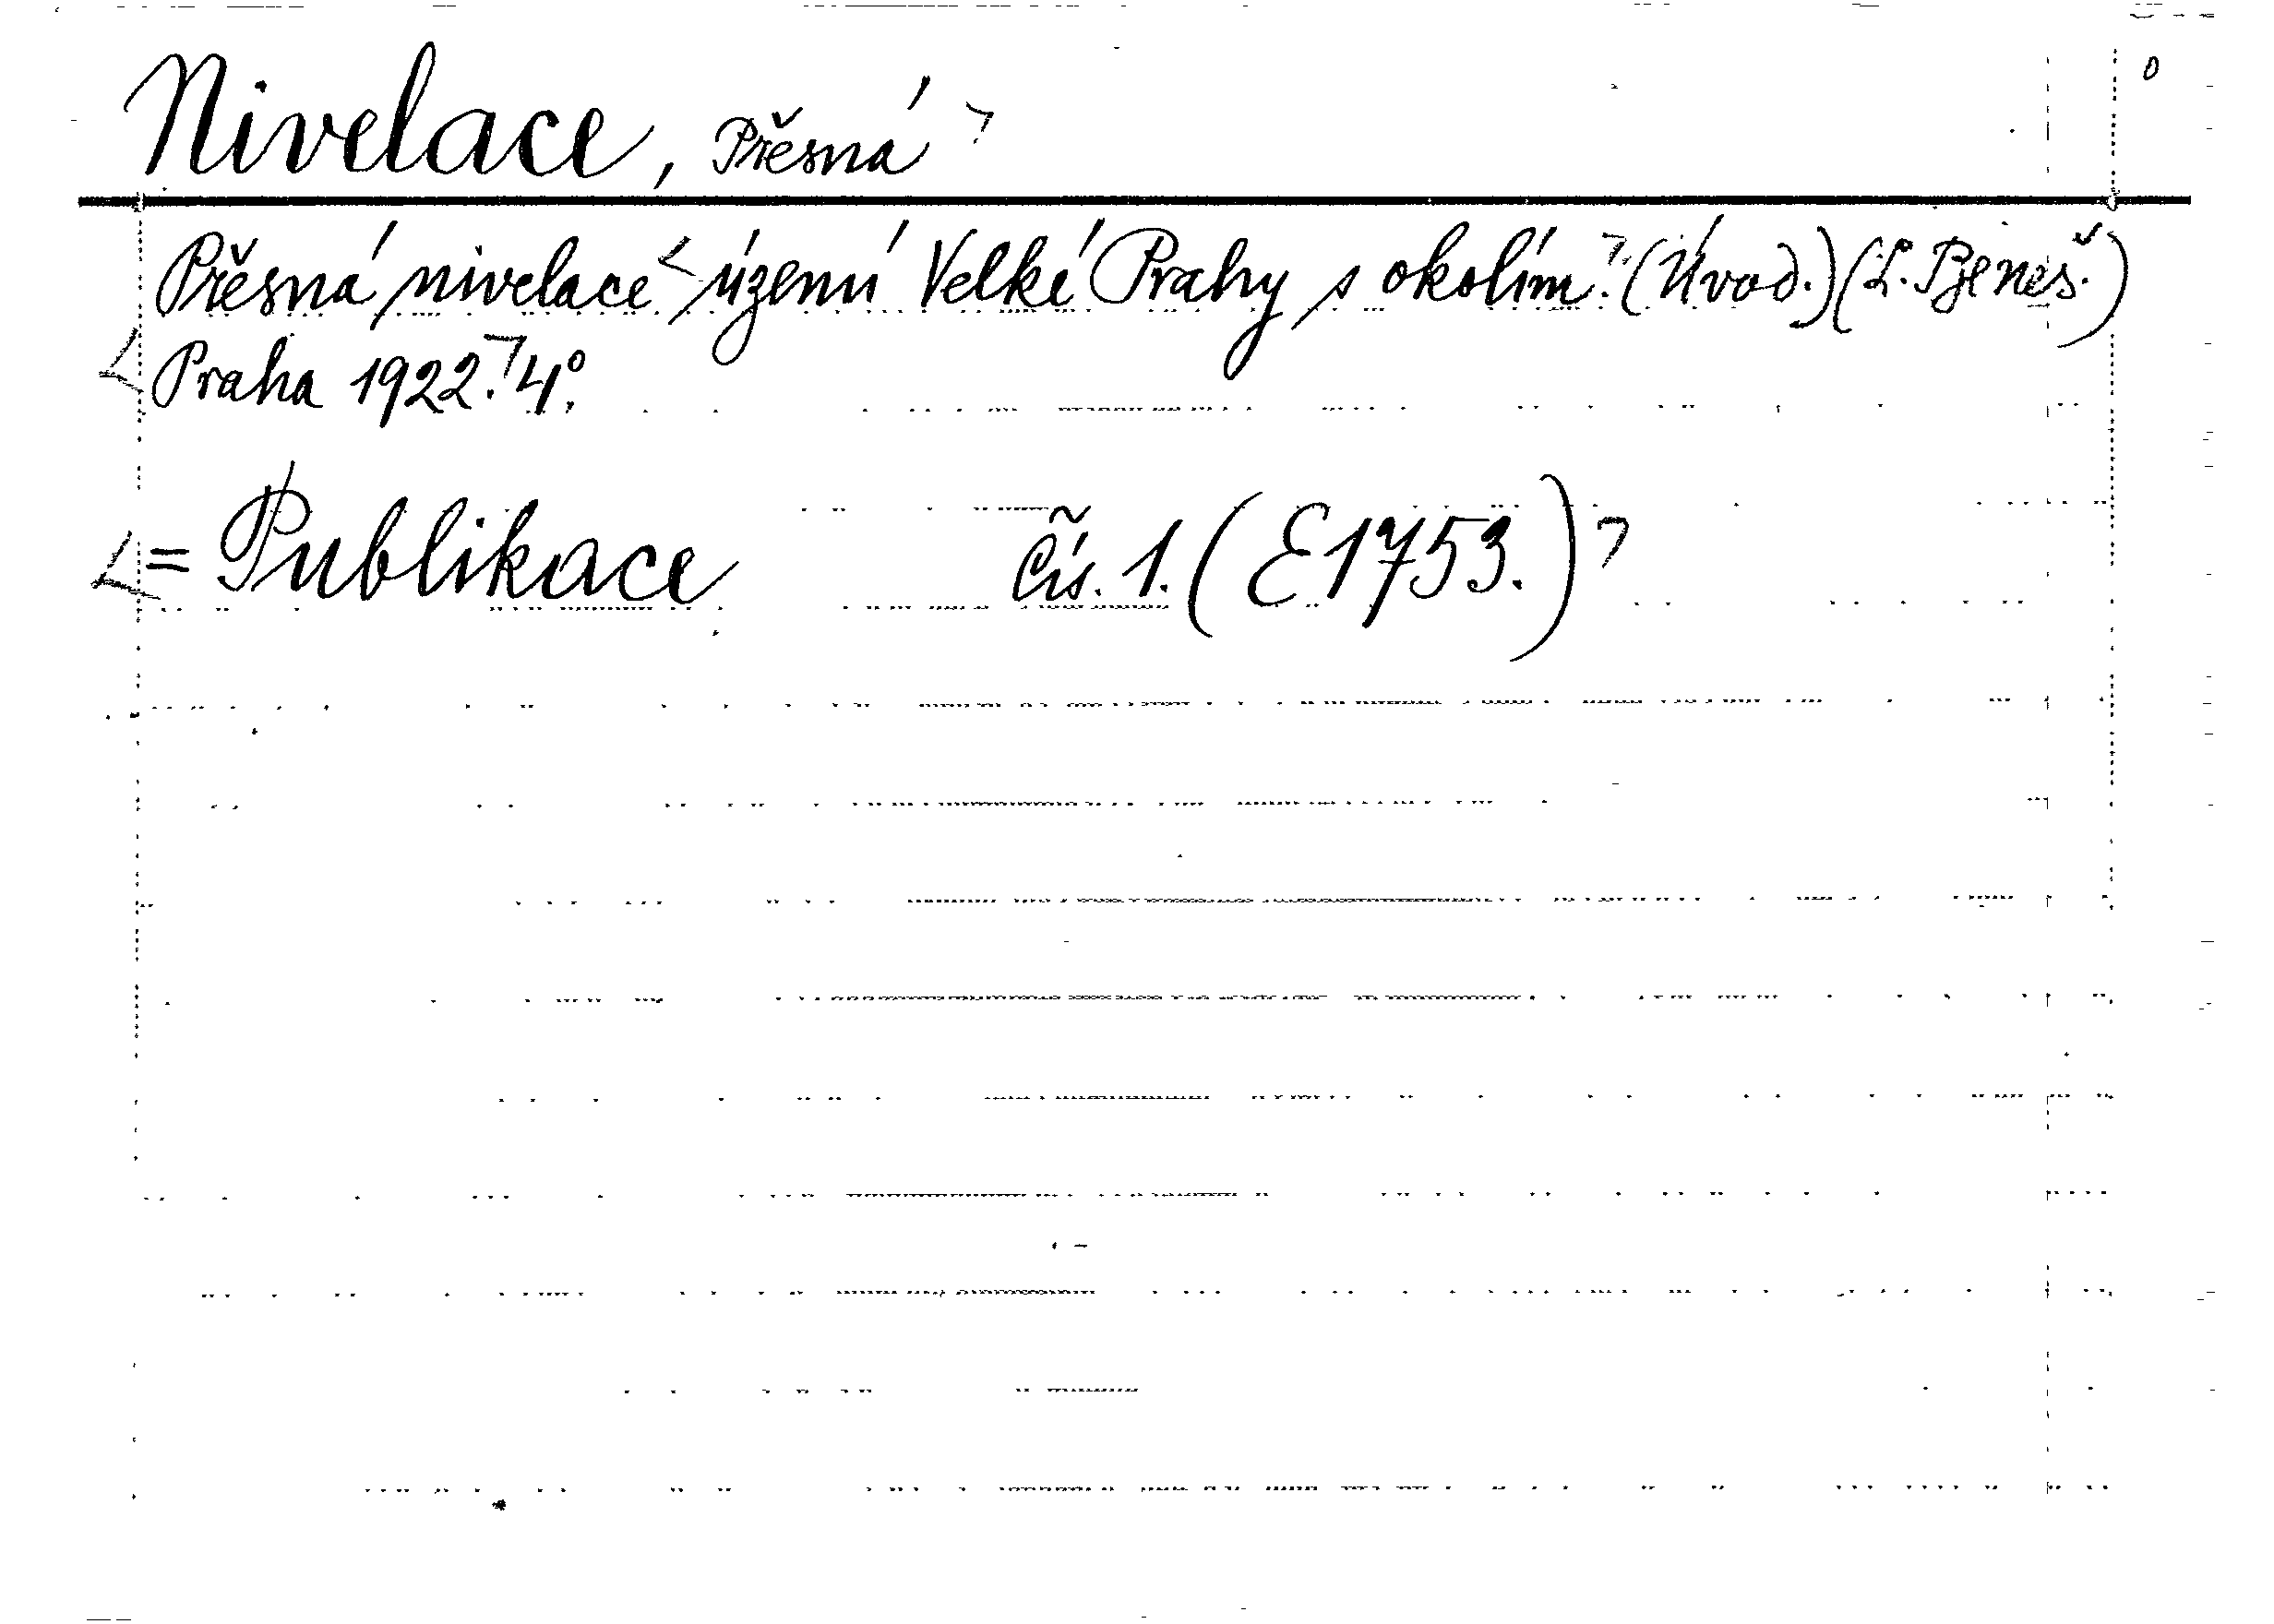 Nivelace, Přesná
Přesná nivelace území Velké Prahy s okolím. (Úvod.) (L. Beneš.)
Praha 1922. 4°.
= Publikace čís. 1. (E1753.)